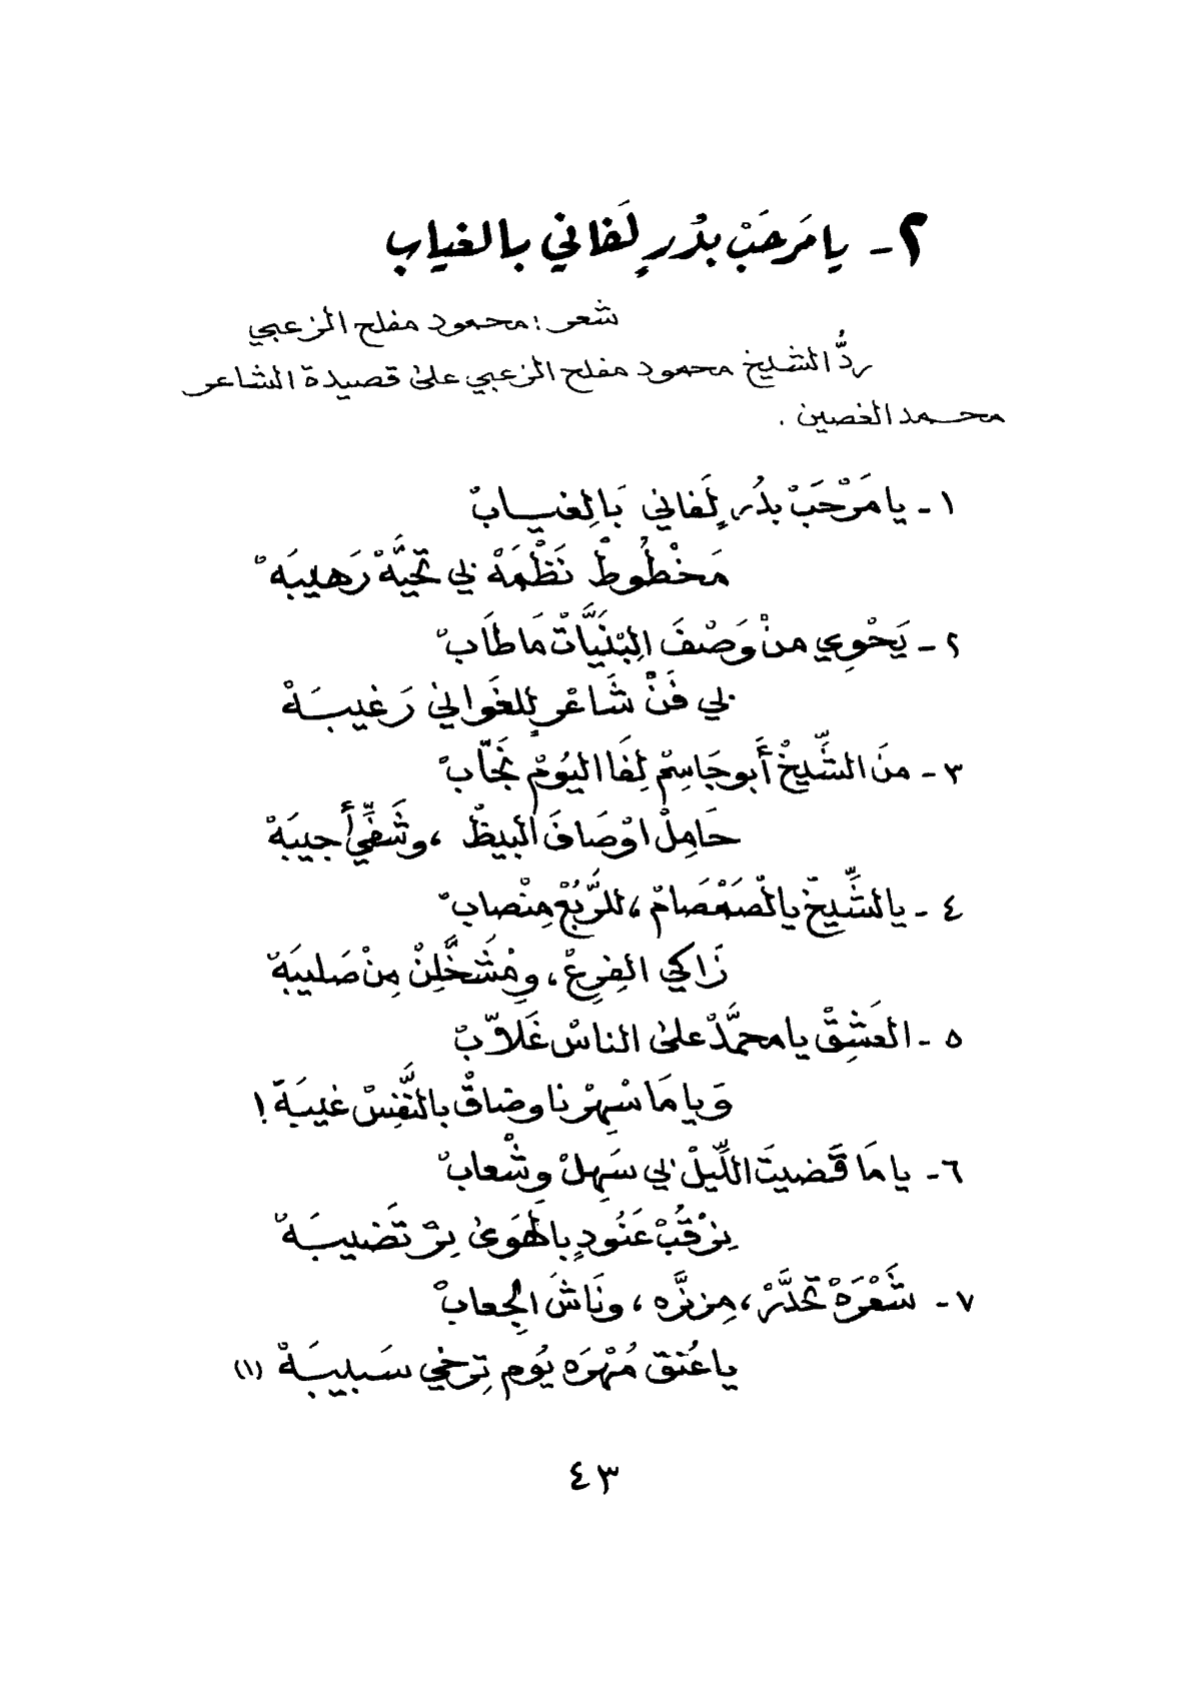 ٢ - يا مَرحَبْ بدُرٍ لَفاني بالغياب
شعر : محمود مفلح الزعبي
ردُّ الشيخ محمود مفلح الزعبي على قصيدة الشاعر
محمد الغصين .
١ - يا مَرْحَبْ بدُرٍ لَفاني بَالِغيابْ
مَخْطُوطْ نَظْمَهْ في تحيَّهْ رَهيبَهْ
٢ - يَحْوِي منْ وَصْفَ الِبْنَيَّاتْ مَا طَابْ
في فَنْ شَاعْرٍ للغَواني رَغيبَهْ
٣ - منَ الشِّيخْ أَبو جَاسِمْ لِفَا اليُومْ نجَّابْ
حَامِلْ اوْصَافَ البيظْ ، وشَفِّي أجيبَهْ
٤ - يا الشِّيخْ يا الصَمْصَامْ ، للرَّبُعْ مِنْصابْ
زَاكي الفِرِعْ ، ومْشَخَّلِنْ مِنْ صَليبَهْ
٥ - العَشِقْ يا محمَّدْ على الناسْ غَلاّبْ
وَيا مَا سْهِرْنا وضاقْ بالنَّفِسْ غيبَهْ !
٦ - يا مَا قَضيتَ اللِّيلْ في سَهِلْ وِشْعابْ
نِرْقُبْ عَنُودٍ بالهَوىٰ نِرْتَضيبَهْ
٧ - شَعْرَهْ تحَدَّرْ ، مِزنَّره ، ونَاشَ الِجعابْ
يا عُنق مُهْرَه يُوم تِرخي سَبيبَهْ (١)
٤٣